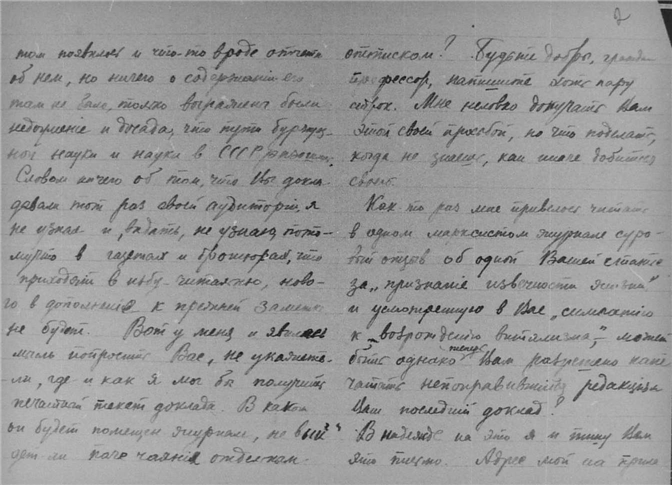 2
том появилось и что-то вроде отчета
об нем, но ничего о содержании его
там не было, только выражены были
недоумение и досада, что пути буржуаз
ной науки и науки в СССР
Словом ничего об том, что Вы докла
дывали тот раз своей аудитории, я
не узнал и, видать, не узнаю, пото-
му что в газетах и брошюрах, что
приходят в избу-читальню, ново-
го в дополнение к прежней заметке
не будет. Вот у меня и явилась
мысль попросить Вас, не укажете-
ли, где и как я мог бы получить
печатный текст доклада. В каком
он будет помещен журнале, не вый
дет-ли паче чаяния отдельным
оттиском? Будьте добры, гражд.
профессор, напишите хоть пару
строк. Мне неловко докучать Вам
этой своей просьбой, но что поделать,
когда не знаешь, как иначе добиться
своего.
Как то раз мне привелось читать
в одном марксистом журнале суро-
вый отзыв об одной Вашей статье
за „признание извечности жизни"
и усмотренную в Вас „симпатию
к возрождению витализма", может
быть однако теперь Вам разрешено напе
чатать редакцией
Ваш последний доклад?
В надежде на это я и пишу Вам
это письмо. Адрес мой на